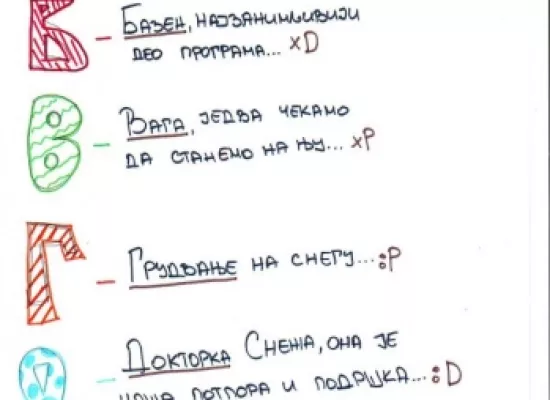 Б – Базен, најзанимљивији
део програма... xD
В – Вага, једва чекамо
да станемо на њу... xP
Г – Грудвање на снегу...:P
Д – Докторка Снежа, она је
наша потпора и подршка...:D